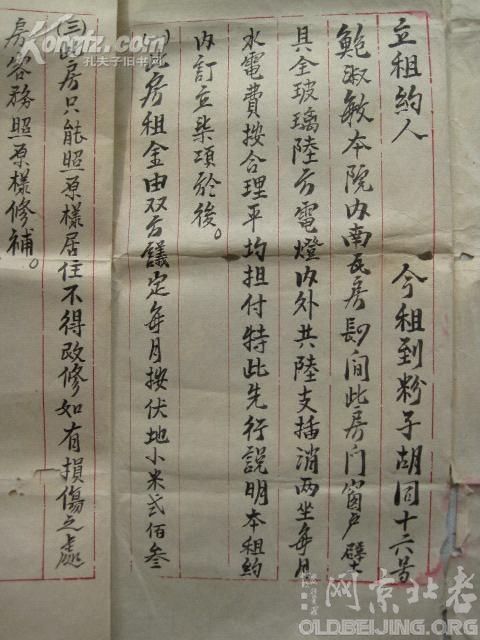 立租約人 今租到粉子胡同十六号
鮑淑敏本院内南瓦房间此房门窗户壁
具全玻璃陸方電燈内外共陸支插消两坐每月
水電費按合理平均担付特此先行説明本租約
内訂立柒項於後。
一)此房租金由双方議定每月按伏地小米弍佰叁
三)此房只能照原樣居住不得改修如有損傷之處
房客務照原樣修補。
孔夫子旧书网
网京北老
OLDBEIJING.ORG